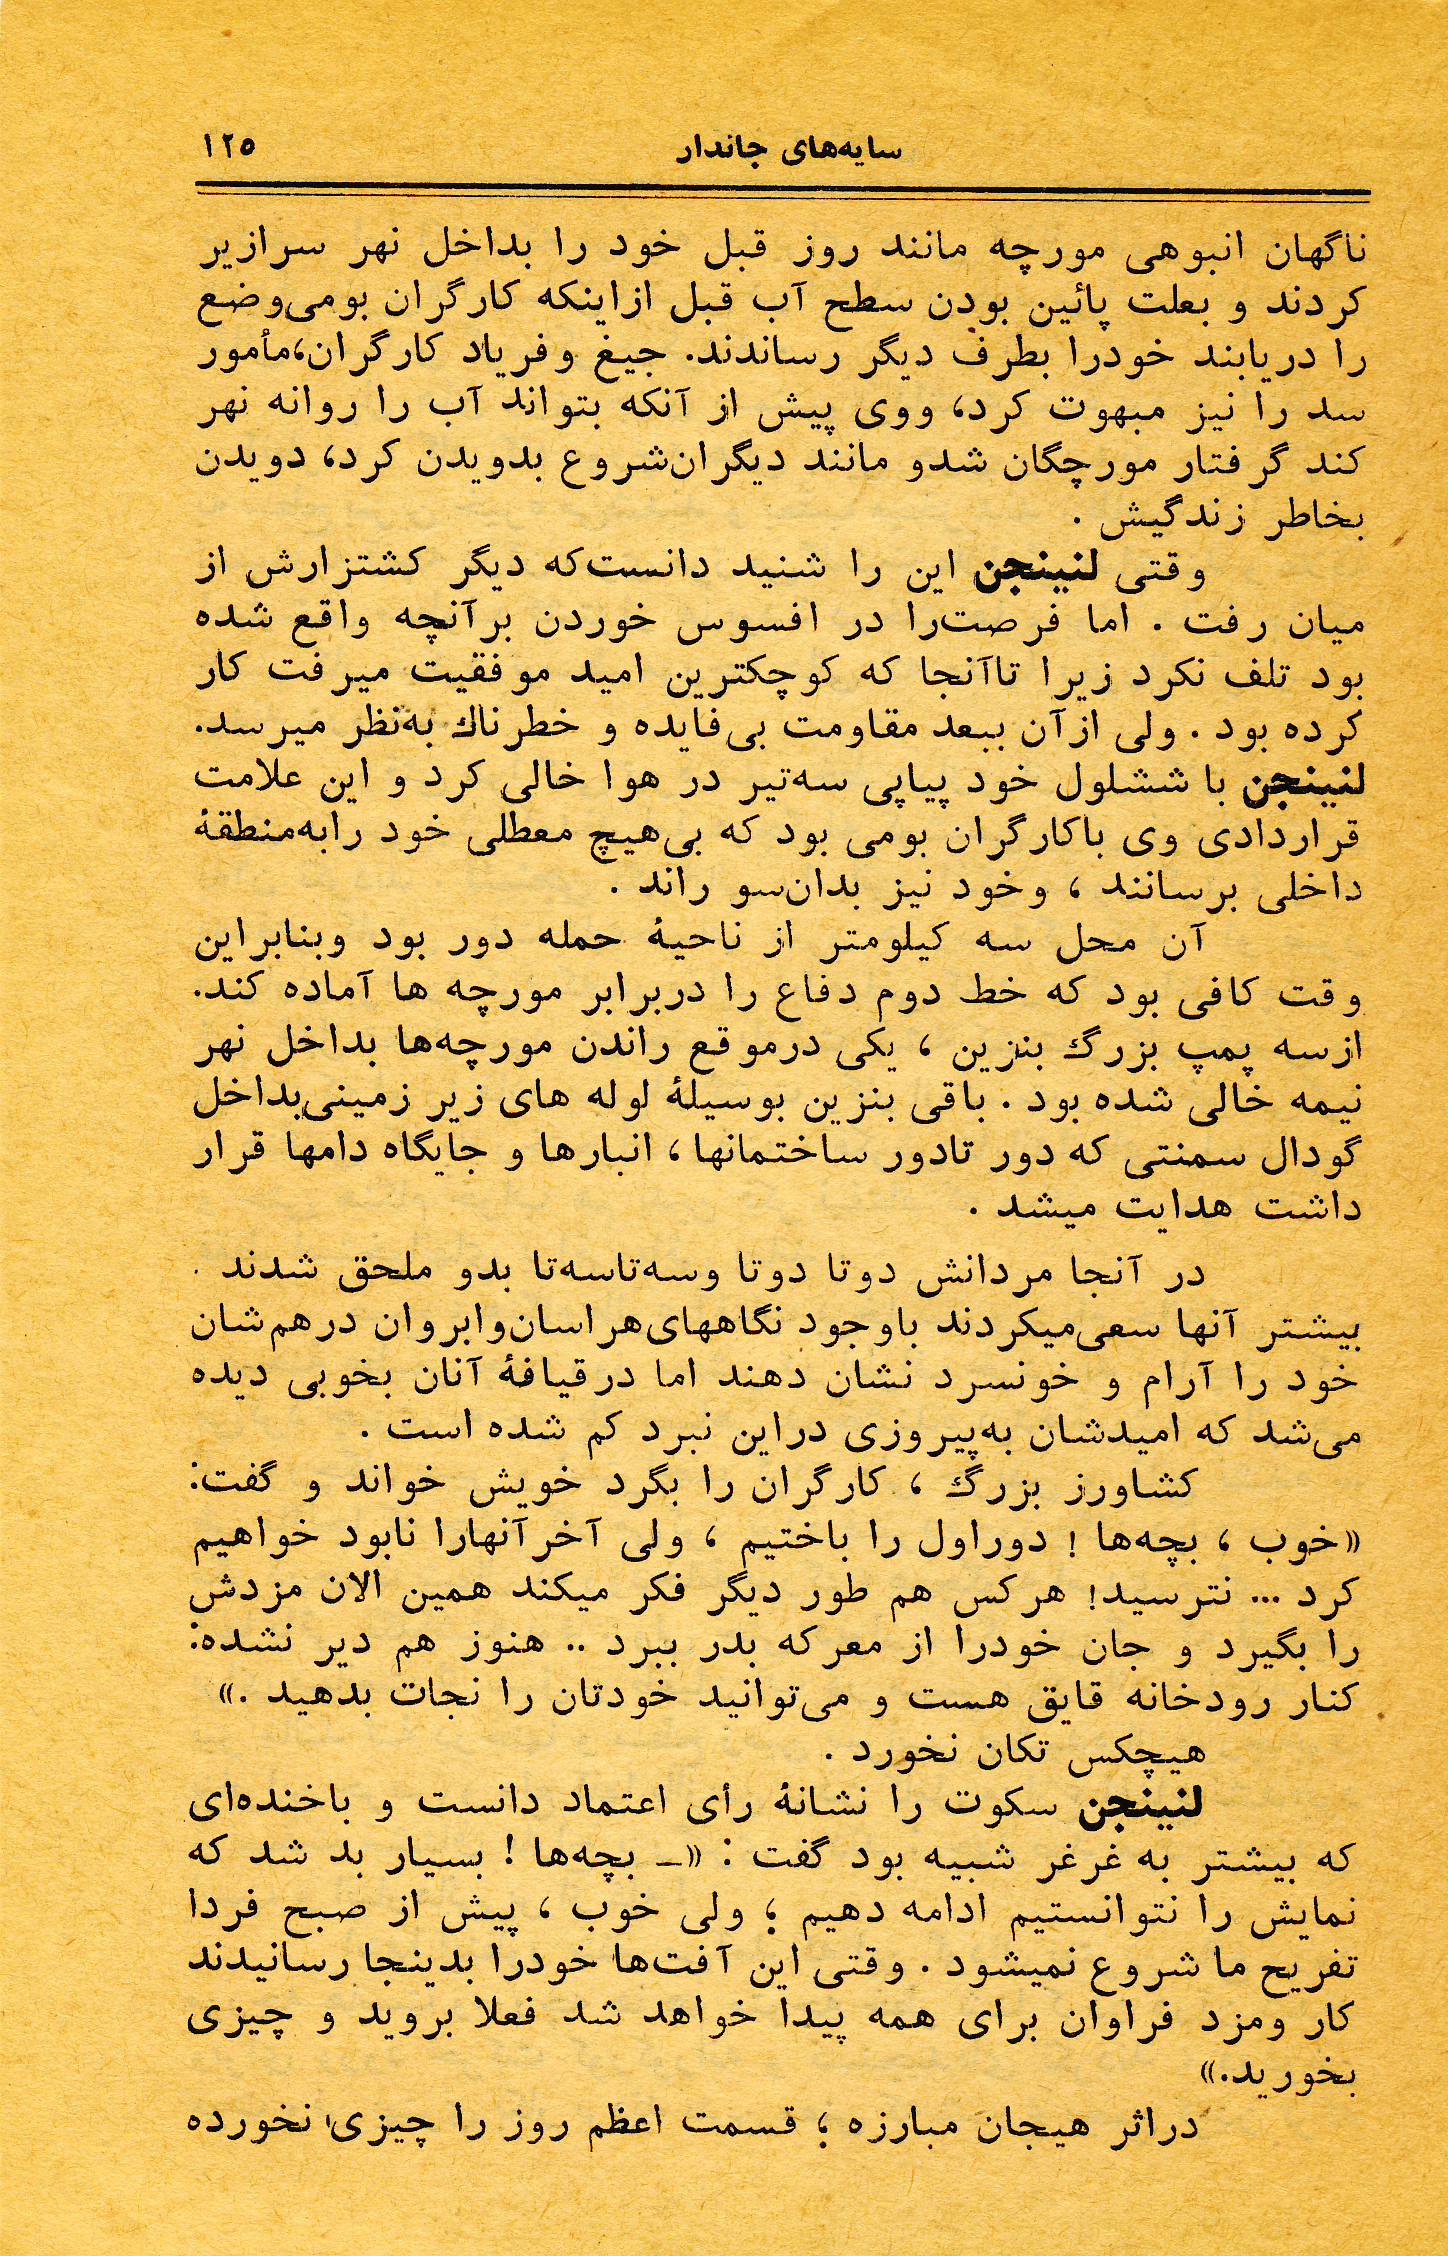 سایه‌های جاندار ۱۲۵
ناگهان انبوهی مورچه مانند روز قبل خود را بداخل نهر سرازیر
کردند و بعلت پائین بودن سطح آب قبل ازاینکه کارگران بومی‌وضع
را دریابند خودرا بطرف دیگر رساندند. جیغ وفریاد کارگران،مأمور
سد را نیز مبهوت کرد، ووی پیش از آنکه بتواند آب را روانه نهر
کند گرفتار مورچگان شدو مانند دیگران‌شروع بدویدن کرد، دویدن
بخاطر زندگیش .
وقتی لنینجن این را شنید دانست‌که دیگر کشتزارش از
میان رفت . اما فرصت‌را در افسوس خوردن برآنچه واقع شده
بود تلف نکرد زیرا تاآنجا که کوچکترین امید موفقیت میرفت کار
کرده بود . ولی ازآن ببعد مقاومت بی‌فایده و خطرناك به‌نظر میرسد.
لنینجن با ششلول خود پیاپی سه‌تیر در هوا خالی کرد و این علامت
قراردادی وی باکارگران بومی بود که بی‌هیچ معطلی خود رابه‌منطقۀ
داخلی برسانند ، وخود نیز بدان‌سو راند .
آن محل سه کیلومتر از ناحیۀ حمله دور بود وبنابراین
وقت کافی بود که خط دوم دفاع را دربرابر مورچه ها آماده کند.
ازسه پمپ بزرگ بنزین ، یکی درموقع راندن مورچه‌ها بداخل نهر
نیمه خالی شده بود . باقی بنزین بوسیلۀ لوله های زیر زمینی‌بداخل
گودال سمنتی که دور تادور ساختمانها ، انبارها و جایگاه دامها قرار
داشت هدایت میشد .
در آنجا مردانش دوتا دوتا وسه‌تاسه‌تا بدو ملحق شدند .
بیشتر آنها سعی‌میکردند باوجود نگاههای‌هراسان‌وابروان درهم‌شان
خود را آرام و خونسرد نشان دهند اما درقیافۀ آنان بخوبی دیده
می‌شد که امیدشان به‌پیروزی دراین نبرد کم شده است .
کشاورز بزرگ ، کارگران را بگرد خویش خواند و گفت:
«خوب ، بچه‌ها ! دوراول را باختیم ، ولی آخرآنهارا نابود خواهیم
کرد ... نترسید! هرکس هم طور دیگر فکر میکند همین الان مزدش
را بگیرد و جان خودرا از معرکه بدر ببرد .. هنوز هم دیر نشده:
کنار رودخانه قایق هست و می‌توانید خودتان را نجات بدهید .»
هیچکس تکان نخورد .
لنینجن سکوت را نشانۀ رأی اعتماد دانست و باخنده‌ای
که بیشتر به غرغر شبیه بود گفت : «ــ بچه‌ها ! بسیار بد شد که
نمایش را نتوانستیم ادامه دهیم ؛ ولی خوب ، پیش از صبح فردا
تفریح ما شروع نمیشود . وقتی این آفت‌ها خودرا بدینجا رسانیدند
کار ومزد فراوان برای همه پیدا خواهد شد فعلا بروید و چیزی
بخورید.»
دراثر هیجان مبارزه ؛ قسمت اعظم روز را چیزی نخورده